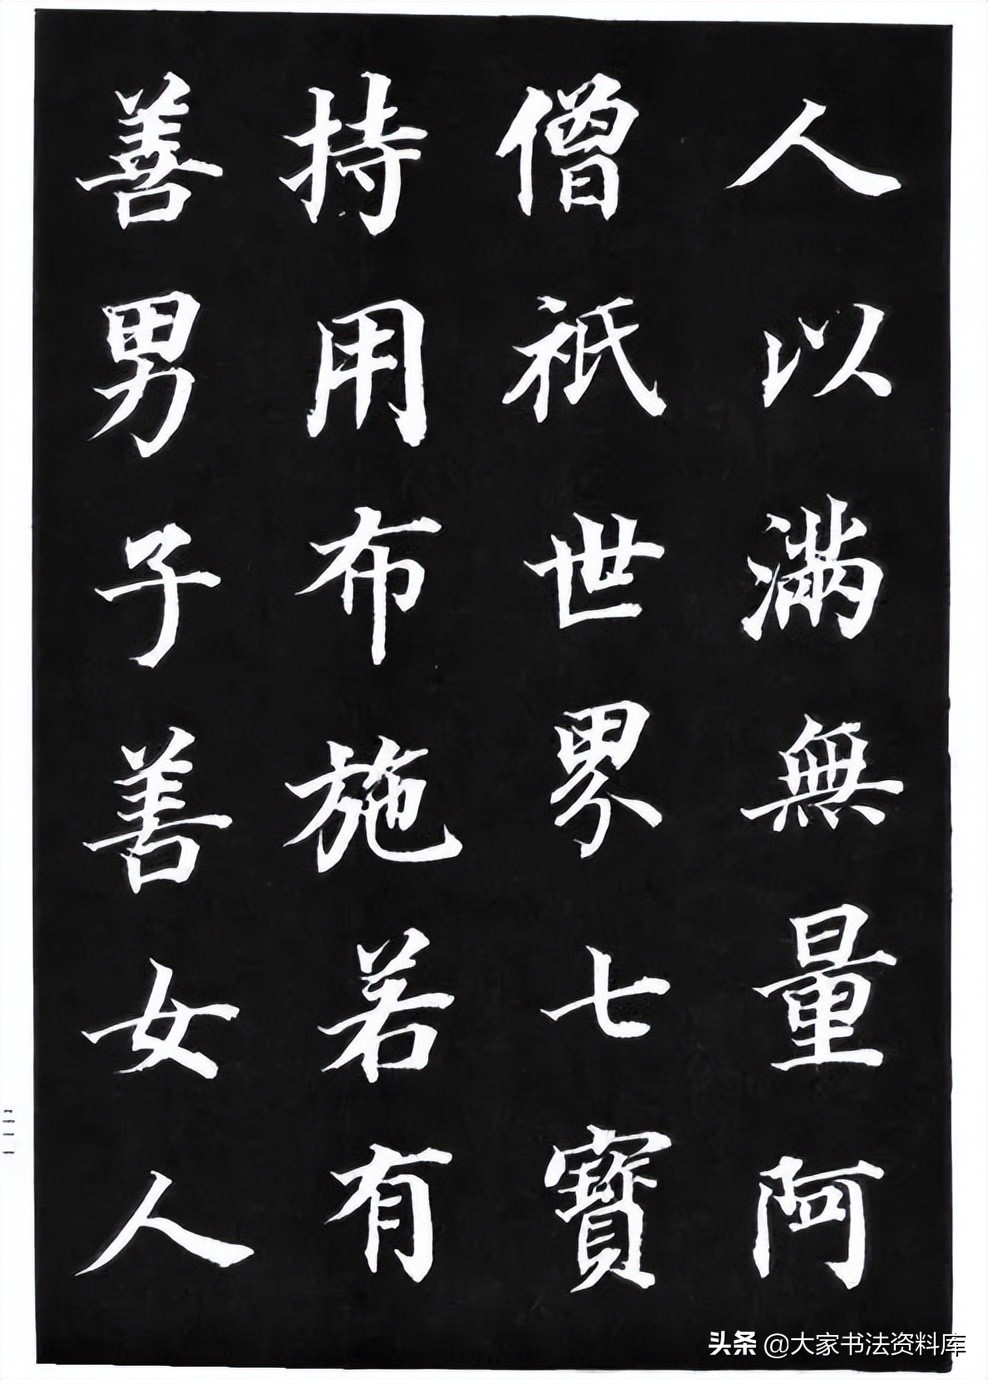 人以滿無量阿
僧祇世界七寶
持用布施若有
善男子善女人
二一一
头条 @大家书法资料库